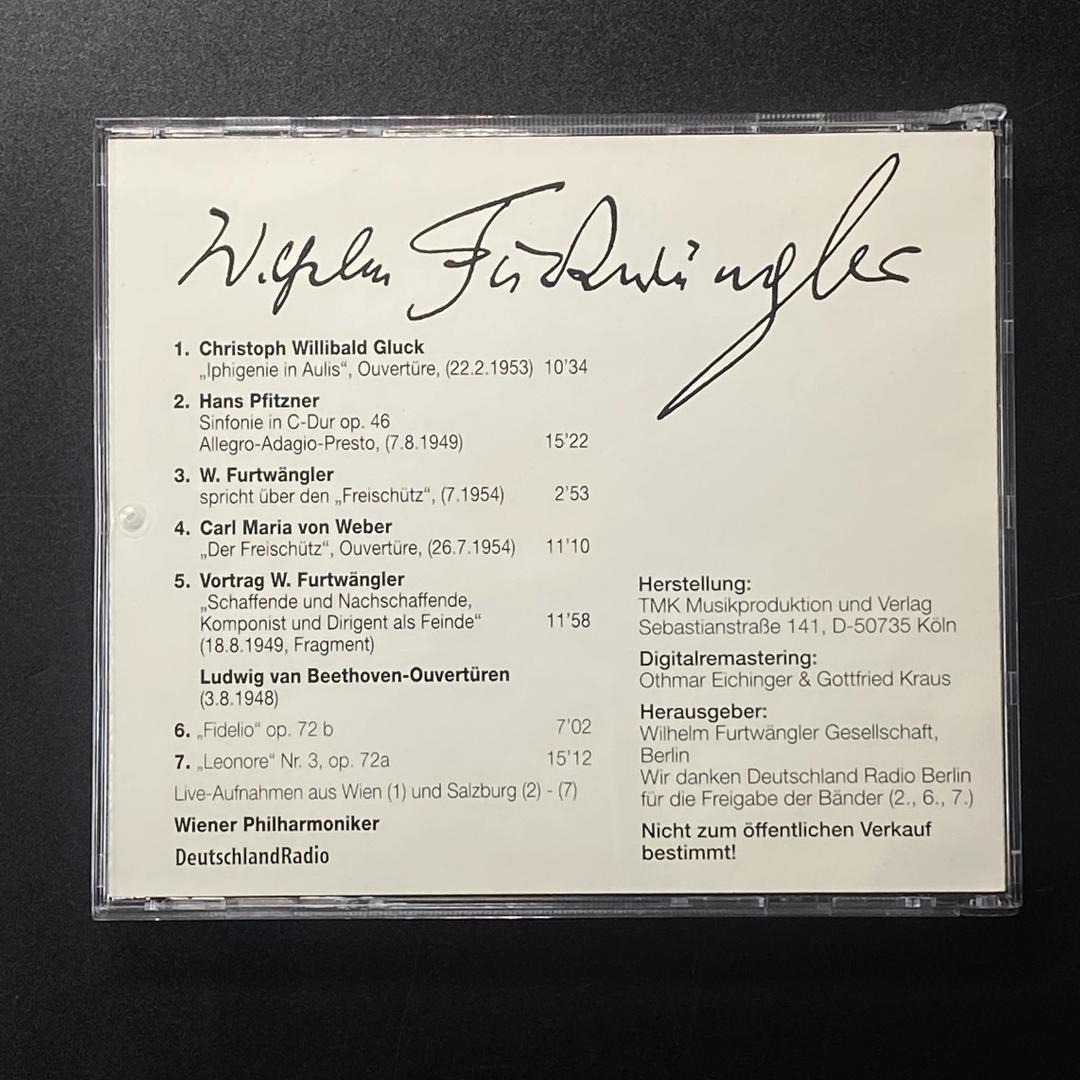 Wilhelm Furtwängler
1. Christoph Willibald Gluck
„Iphigenie in Aulis“, Ouvertüre, (22.2.1953) 10'34
2. Hans Pfitzner
Sinfonie in C-Dur op. 46
Allegro-Adagio-Presto, (7.8.1949) 15'22
3. W. Furtwängler
spricht über den „Freischütz“, (7.1954) 2'53
4. Carl Maria von Weber
„Der Freischütz“, Ouvertüre, (26.7.1954) 11'10
5. Vortrag W. Furtwängler
„Schaffende und Nachschaffende,
Komponist und Dirigent als Feinde“ 11'58
(18.8.1949, Fragment)
Ludwig van Beethoven-Ouvertüren
(3.8.1948)
6. „Fidelio“ op. 72 b 7'02
7. „Leonore“ Nr. 3, op. 72a 15'12
Live-Aufnahmen aus Wien (1) und Salzburg (2) - (7)
Wiener Philharmoniker
DeutschlandRadio
Herstellung:
TMK Musikproduktion und Verlag
Sebastianstraße 141, D-50735 Köln
Digitalremastering:
Othmar Eichinger & Gottfried Kraus
Herausgeber:
Wilhelm Furtwängler Gesellschaft,
Berlin
Wir danken Deutschland Radio Berlin
für die Freigabe der Bänder (2., 6., 7.)
Nicht zum öffentlichen Verkauf
bestimmt!